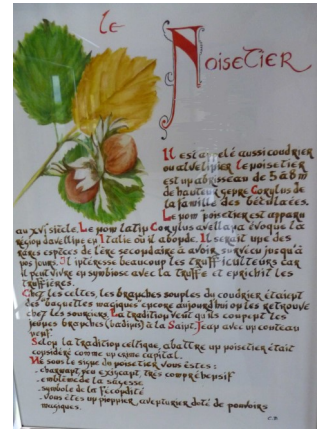 le
Noisetier
Il est appelé aussi coudrier
ou alvelinier le noisetier
est un abrisseau de 5 à 6 m
de hauteur genre Corylus de
la famille des bétulacées.
Le nom noisetier est apparu
au XVI siècle. Le nom latin Corylus avellana évoque la
région d'avelline en Italie où il abonde. Il serait une des
rares espèces de l'ère secondaire à avoir survécu jusqu'à
nos jours. Il intéresse beaucoup les trufficulteurs car
il peut vivre en symbiose avec la truffe et enrichit les
truffières.
Chez les celtes, les branches souples du coudrier étaient
des baguettes magiques encore aujourd'hui on les retrouve
chez les sourciers. La tradition veut qu'ils coupent les
jeunes branches (badines) à la Saint Jean avec un couteau
neuf.
Selon la tradition celtique, abattre un noisetier était
considéré comme un crime capital.
Né sous le signe du noisetier vous êtes :
. charmant, peu exigeant, très compréhensif
. emblème de la sagesse
. symbole de la fécondité
. vous êtes un pionnier, aventurier doté de pouvoirs
magiques.